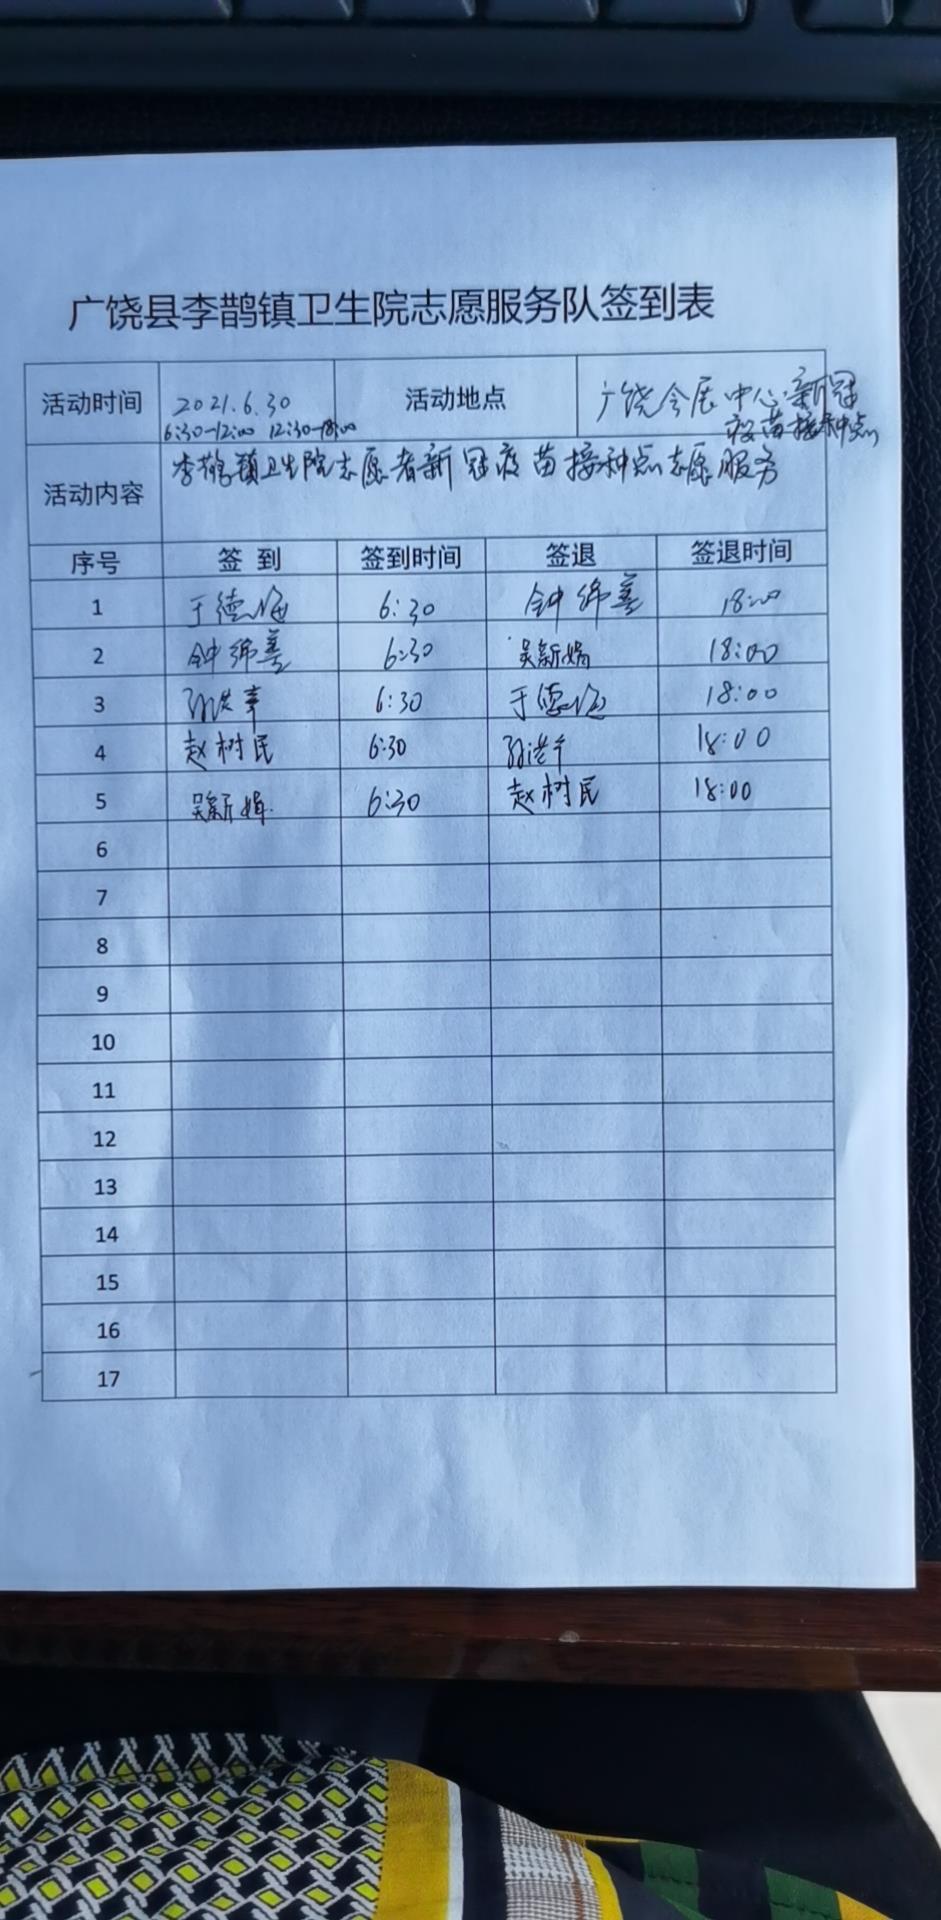 广饶县李鹊镇卫生院志愿服务队签到表
活动时间 2021.6.30 活动地点 广饶会展中心新冠
6:30-12:00 12:30-18:00 疫苗接种点
活动内容 李鹊镇卫生院志愿者新冠疫苗接种点志愿服务
序号 签到 签到时间 签退 签退时间
1 于德海 6:30 钟绵善 18:00
2 钟绵善 6:30 吴新娟 18:00
3 6:30 于德海 18:00
4 赵树民 6:30 18:00
5 吴新娟 6:30 赵树民 18:00
6
7
8
9
10
11
12
13
14
15
16
17